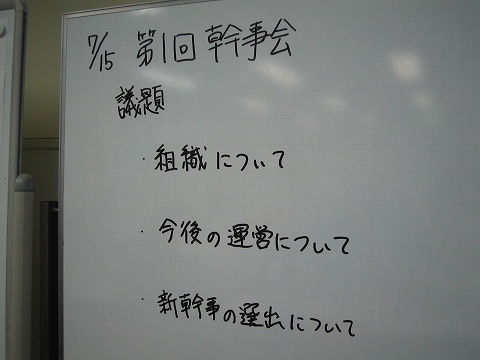 7/15 第1回幹事会
議題
・組織について
・今後の運営について
・新幹事の選出について